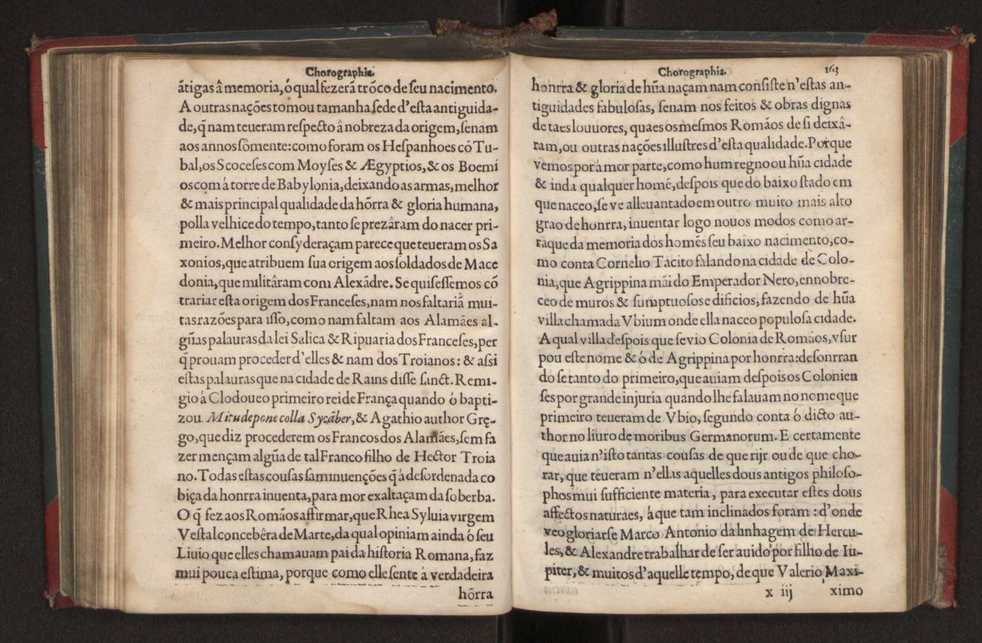 Chorographia.
ãtigas â memoria, ó qual fezerã trõco de seu nacimento.
A outras nações tomou tamanha sede d'esta antiguida-
de, q̃ nam teueram respecto â nobreza da origem, senam
aos annos sómente: como foram os Hespanhoes cõ Tu-
bal, os Scoceses com Moyses & Ægyptios, & os Boemi
os com â torre de Babylonia, deixando as armas, melhor
& mais principal qualidade da hõrra & gloria humana,
polla velhice do tempo, tanto se prezâram do nacer pri-
meiro. Melhor consyderaçam parece que teueram os Sa
xonios, que atribuem sua origem aos soldados de Mace
donia, que militâram com Alexãdre. Se quisessemos cõ
trariar esta origem dos Franceses, nam nos faltariã mui-
tas razões para isso, como nam faltam aos Alamães al-
gũas palauras da lei Salica & Ripuaria dos Franceses, per
q̃ prouam proceder d'elles & nam dos Troianos: & assi
estas palauras que na cidade de Rains disse sanct. Remi-
gio â Clodoueo primeiro rei de França quando ó bapti-
zou. Mitu depone colla Sycãber, & Agathio author Gre-
go, que diz procederem os Francos dos Alamães, sem fa
zer mençam algũa de tal Franco filho de Hector Troia
no. Todas estas cousas sam inuenções q̃ â desordenada co
biça da honrra inuenta, para mor exaltaçam da soberba.
O q̃ fez aos Romãos affirmar, que Rhea Syluia virgem
Vestal concebêra de Marte, da qual opiniam ainda ó seu
Liuio que elles chamauam pai da historia Romana, faz
mui pouca estima, porque como elle sente â verdadeira
hõrra
Chorographia. 163
honrra & gloria de hũa naçam nam consiste n'estas an-
tiguidades fabulosas, senam nos feitos & obras dignas
de taes louuores, quaes os mesmos Romãos de si deixâ-
ram, ou outras nações illustres d'esta qualidade. Porque
vemos por â mor parte, como hum regno ou hũa cidade
& inda qualquer homẽ, despois que do baixo stado em
que naceo, se ve alleuantado em outro muito mais alto
grao de honrra, inuentar logo nouos modos com o ar-
raque da memoria dos homẽs seu baixo nacimento, co-
mo conta Cornelio Tacito falando na cidade de Colo-
nia, que Agrippina mãi do Emperador Nero, ennobre-
ceo de muros & sumptuosos edificios, fazendo de hũa
villa chamada Vbium onde ella naceo populosa cidade.
A qual villa despois que se vio Colonia de Romãos, vsur
pou este nome & ó de Agrippina por honrra: desonrran
do se tanto do primeiro, que auiam despois os Colonien
ses por grande injuria quando lhe falauam no nome que
primeiro teueram de Vbio, segundo conta ó dicto au-
thor no liuro de moribus Germanorum. E certamente
que auia n'isto tantas cousas de que rijr ou de que cho-
rar, que teueram n'ellas aquelles dous antigos philoso-
phos mui sufficiente materia, para executar estes dous
affectos naturaes, â que tam inclinados foram: d'onde
veo gloriarse Marco Antonio da linhagem de Hercu-
les, & Alexandre trabalhar de ser auido por filho de Iu-
piter, & muitos d'aquelle tempo, de que Valerio Maxi-
x iij ximo